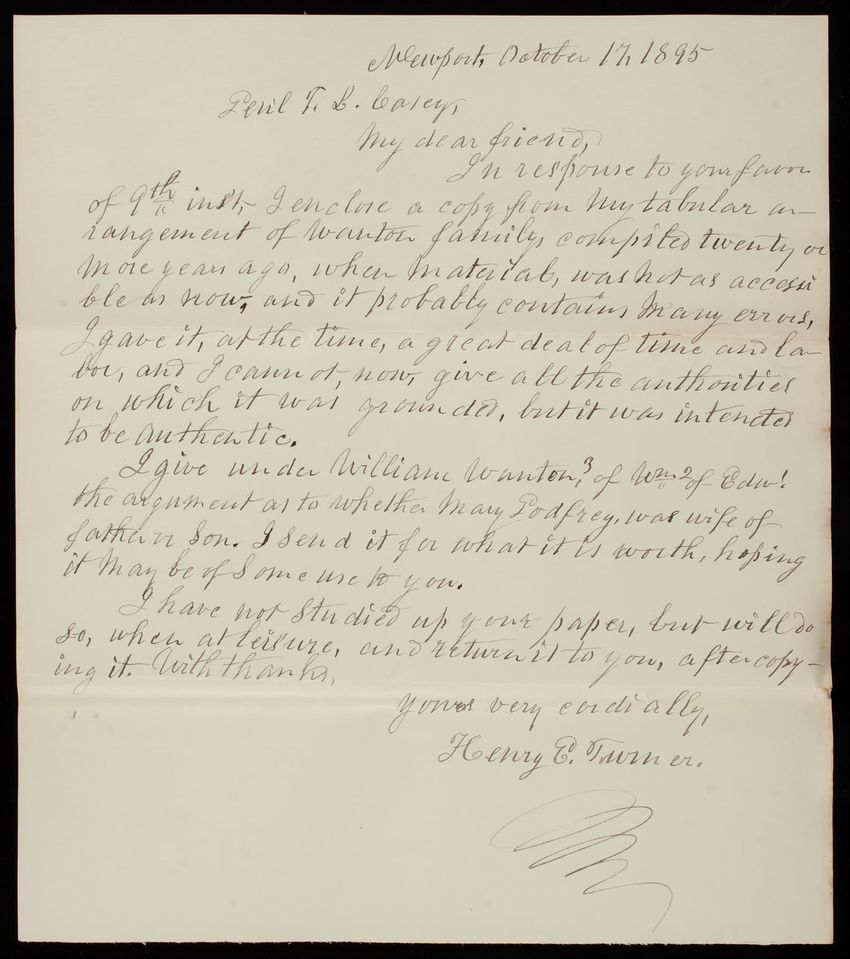 Newport, October 17, 1895
Genl T. L. Casey,
My dear friend,
In response to your favor
of 9th inst, I enclose a copy from my tabular ar-
rangement of Wanton family, compiled twenty or
more years ago, when material, was not as accessi
ble as now, and it probably contains many errors,
I gave it, at the time, a great deal of time and la-
bor, and I cannot, now, give all the authorities
on which it was grounded, but it was intended
to be authentic.
I give under William Wanton,3 of Wm2 of Edwd
the argument as to whether Mary Godfrey, was wife of
father or son. I send it for what it is worth, hoping
it may be of some use to you.
I have not studied up your paper, but will do
so, when at leisure, and return it to you, after copy-
ing it. With thanks,
yours very cordially,
Henry E. Turner.